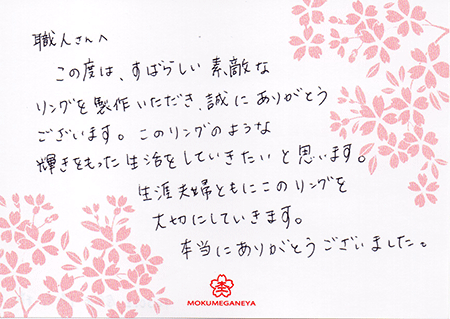 職人さんへ
この度は、すばらしい素敵な
リングを製作いただき、誠にありがとう
ございます。このリングのような
輝きをもった生活をしていきたいと思います。
生涯夫婦ともにこのリングを
大切にしていきます。
本当にありがとうございました。
MOKUMEGANEYA